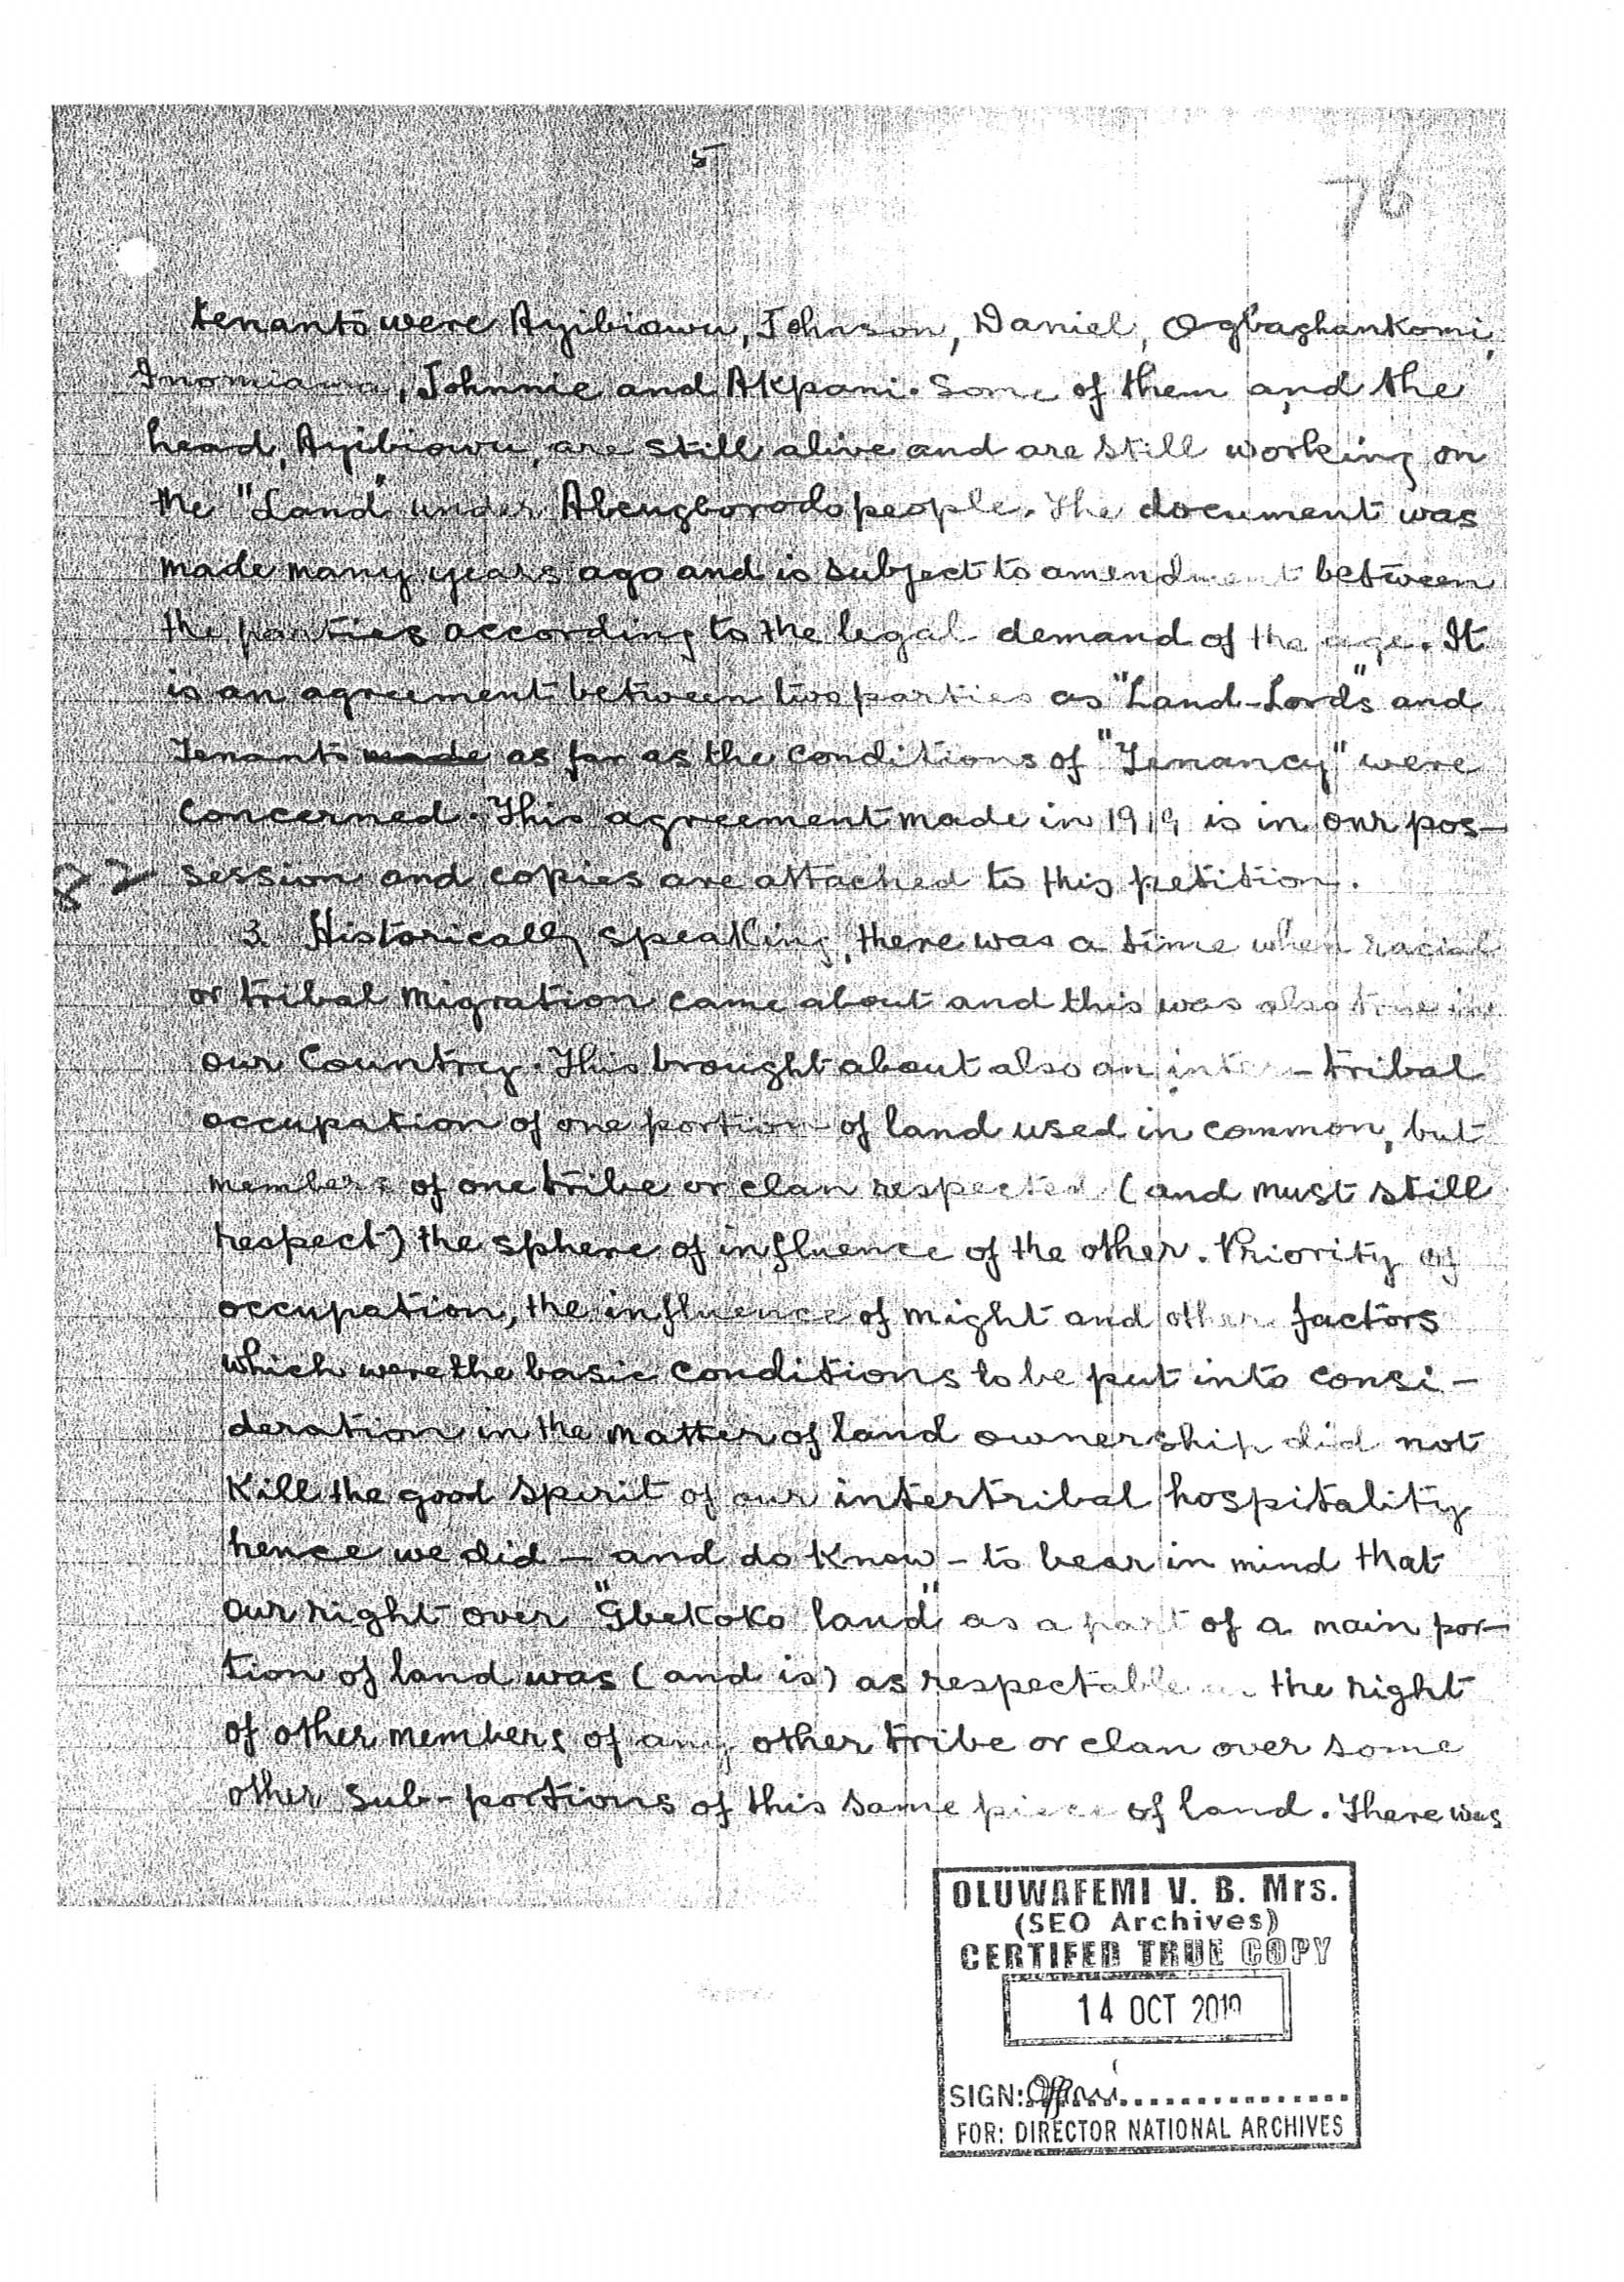 5
76
tenants were Ayibiowu, Johnson, Daniel, Ogbaghankomi,
Johnnie and Akpani. Some of them and the
head, Ayibiowu, are still alive and are still working on
the "Land" under Abeugborodo people. The document was
made many years ago and is subject to amendment between
the parties according to the legal demand of the age. It
is an agreement between two parties as "Land-Lords" and
Tenants made as far as the conditions of "Tenancy" were
concerned. This agreement made in 1919 is in our pos-
82 session and copies are attached to this petition.
3. Historically speaking, there was a time when racial
or tribal migration came about and this was also true in
our Country. This brought about also an inter-tribal
occupation of one portion of land used in common, but
members of one tribe or clan respected (and must still
respect) the sphere of influence of the other. Priority of
occupation, the influence of might and other factors
which were the basic conditions to be put into consi-
deration in the matter of land ownership did not
kill the good spirit of our intertribal hospitality
hence we did - and do know - to bear in mind that
our right over "Gbekoko land" as a part of a main por-
tion of land was (and is) as respectable as the right
of other members of any other tribe or clan over some
other sub-portions of this same piece of land. There was
OLUWAFEMI V. B. Mrs.
(SEO Archives)
CERTIFED TRUE COPY
14 OCT 2019
SIGN:
FOR: DIRECTOR NATIONAL ARCHIVES